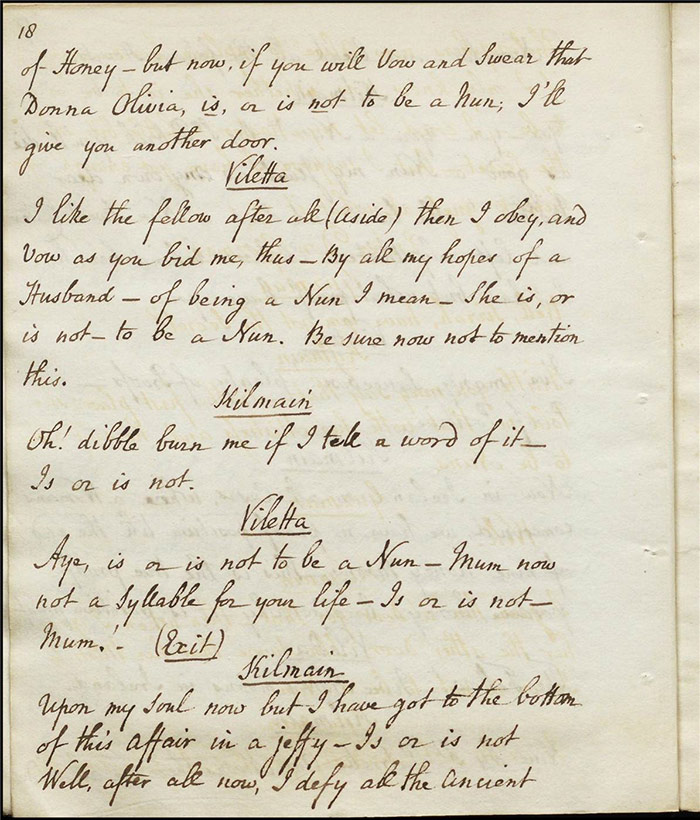 18
of Honey – but now, if you will Vow and Swear that
Donna Olivia, is, or is not to be a Nun; I'll
give you another door.
Viletta
I like the fellow after all (aside) then I obey, and
Vow as you bid me, thus – By all my hopes of a
Husband – of being a Nun I mean – She is, or
is not – to be a Nun. Be sure now not to mention
this.
Kilmain
Oh! dibble burn me if I tell a word of it –
Is or is not.
Viletta
Aye, is or is not to be a Nun – Mum now
not a Syllable for your life – Is or is not –
Mum! – (Exit)
Kilmain
Upon my Soul now but I have got to the bottom
of this affair in a jeffy – Is or is not
Well, after all now, I defy all the ancient